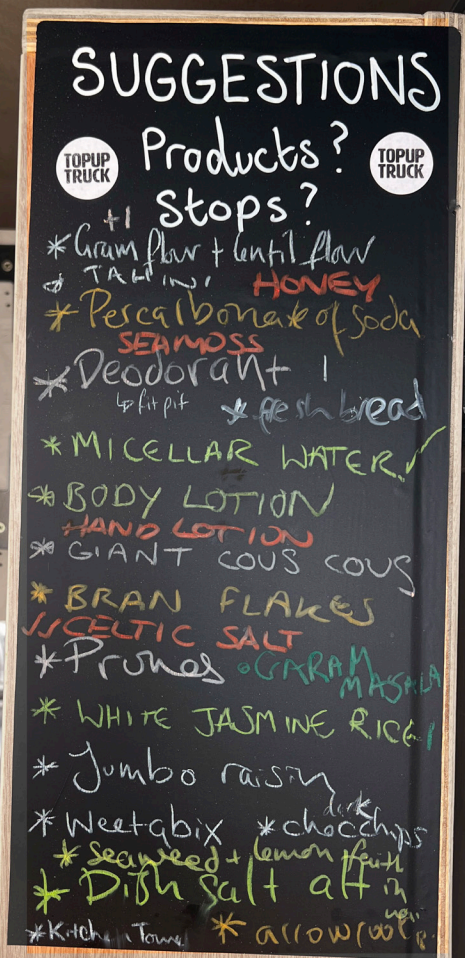 SUGGESTIONS
TOPUP TRUCK
Products?
TOPUP TRUCK
Stops?
+1
* Gram flour + lentil flour
TAHINI HONEY
* Percarbonate of soda
SEAMOSS
* Deodorant 1
↳ fit pit * fresh bread
* MICELLAR WATER ✓
* BODY LOTION
HAND LOTION
* GIANT COUS COUS
* BRAN FLAKES
✓✓CELTIC SALT
* Prunes • GARAM
MASALA
* WHITE JASMINE RICE
* Jumbo raisin
dark
* Weetabix * choc chips
* seaweed + lemon
* Dish Salt
* Kitchen * arrowroot